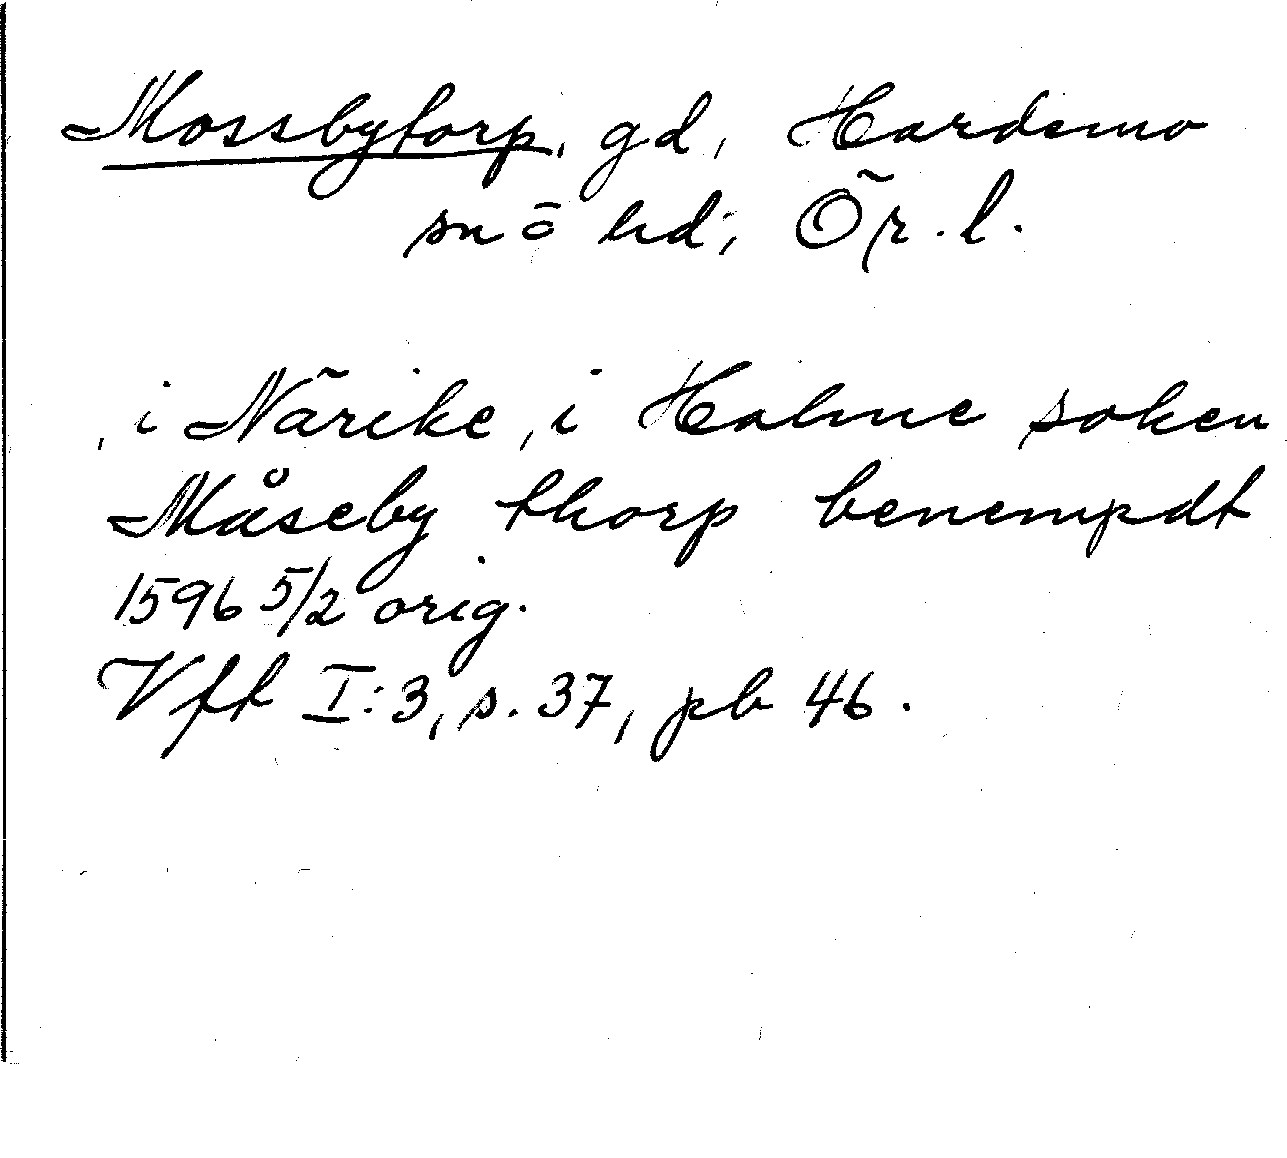 Mossbytorp, gd, Hardemo
sn ō hd; Ör. l.
, i Närike, i Halme soken
Måseby thorp benempdt
1596 5/2 orig.
Vff I:3, s. 37, pb 46.